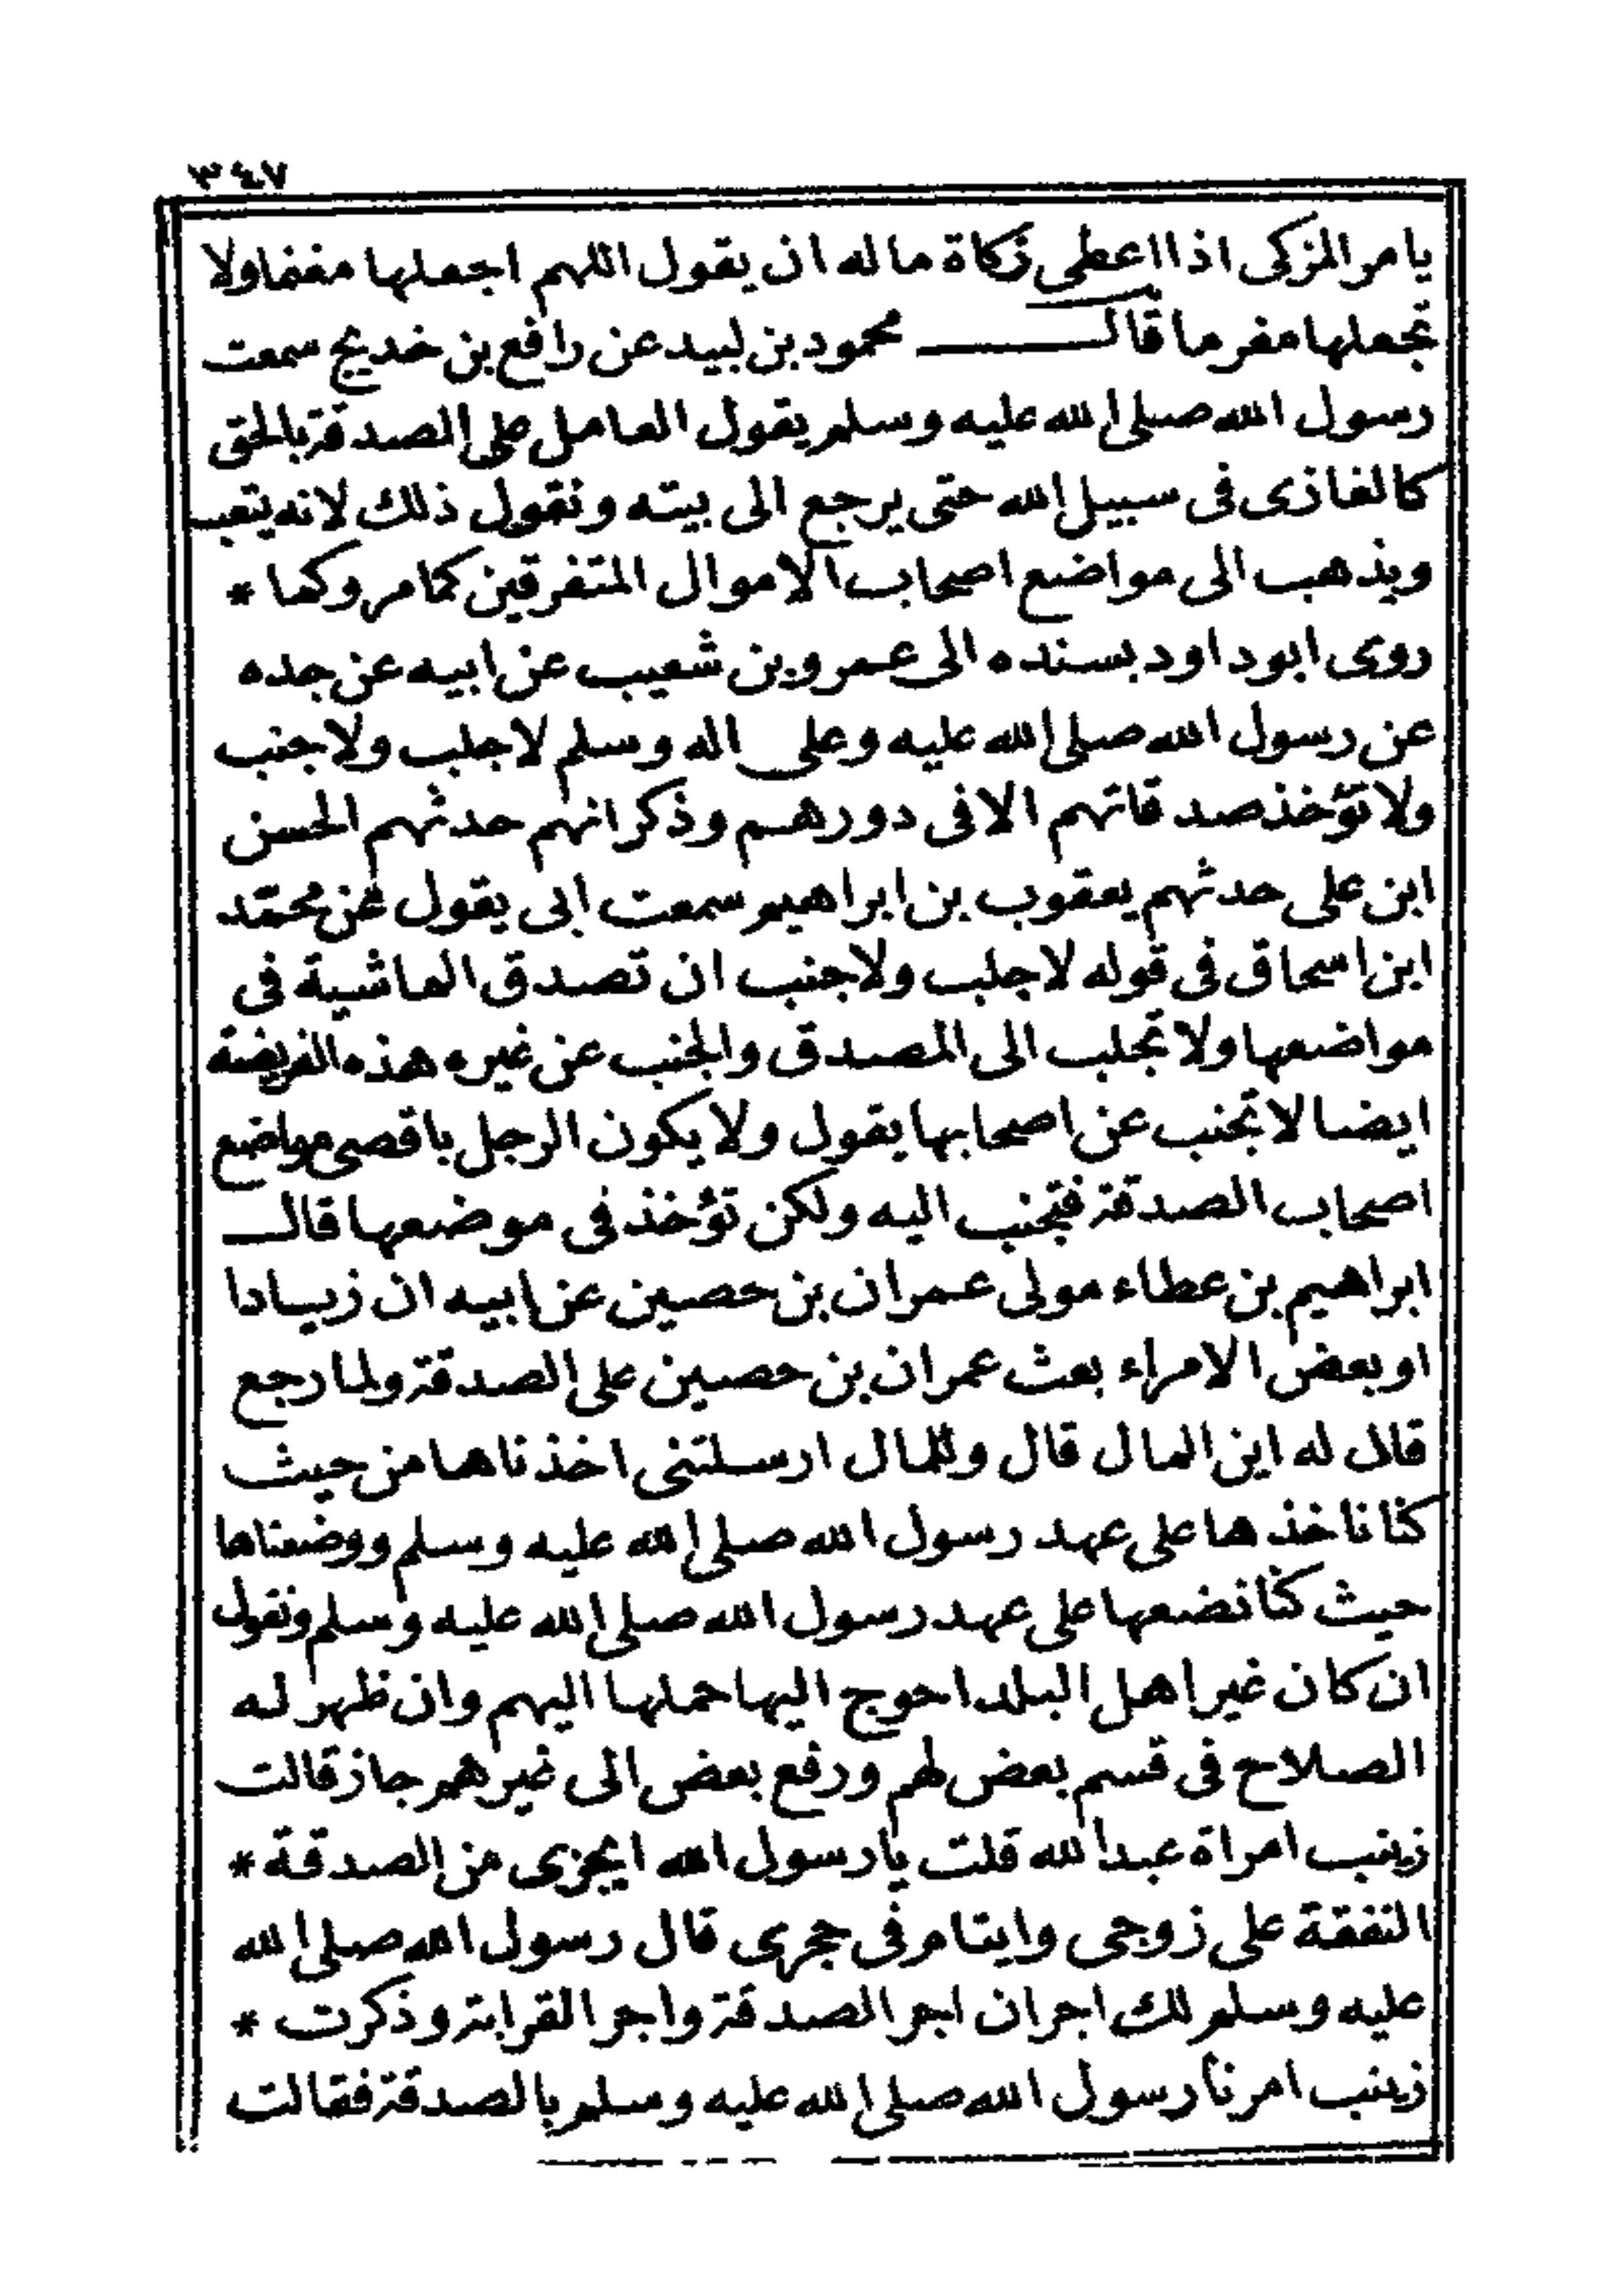 ٣٤٧
يامر المزكى اذا اعطى زكاة ماله ان يقول اللهم اجعلها مغنما ولا
تجعلها مغرما قال محمود بن لبيد عن رافع بن خديج سمعت
رسول الله صلى الله عليه وسلم يقول العامل على الصدقة بالحق
كالغازى فى سبيل الله حتى يرجع الى بيته ونقول ذلك لانه يتعب
ويذهب الى مواضع اصحاب الاموال المتفرقين كما مر وكما *
روى ابو داود بسنده الى عمرو بن شعيب عن ابيه عن جده
عن رسول الله صلى الله عليه وعلى اله وسلم لا جلب ولا جنب
ولا تؤخذ صدقاتهم الا فى دورهم وذكر انهم حدثهم الحسن
ابن على حدثهم يعقوب بن ابراهيم سمعت ابى يقول عن محمد
ابن اسحاق فى قوله لا جلب ولا جنب ان تصدق الماشية فى
مواضعها ولا تجلب الى المصدق والجنب عن غيره هذه الفريضة
ايضا لا تجنب عن اصحابها يقول ولا يكون الرجل باقصى مواضع
اصحاب الصدقة فتجنب اليه ولكن تؤخذ فى موضعها قال
ابراهيم بن عطاء مولى عمران بن حصين عن ابيه ان زيادا
او بعض الامراء بعث عمران بن حصين على الصدقة ولما رجع
قال له اين المال قال وللمال ارسلتنى اخذناها من حيث
كنا ناخذها على عهد رسول الله صلى الله عليه وسلم ووضعناها
حيث كنا نضعها على عهد رسول الله صلى الله عليه وسلم ونقول
ان كان غير اهل البلد احوج اليها حملها اليهم وان ظهر له
الصلاح فى قسم بعض لهم ورفع بعض الى غيرهم جاز قالت
زينب امراة عبد الله قلت يا رسول الله ايجزى من الصدقة *
النفقة على زوجى وايتام فى حجرى قال رسول الله صلى الله
عليه وسلم لك اجران اجر الصدقة واجر القرابة وذكرت *
زينب امرنا رسول الله صلى الله عليه وسلم بالصدقة فقالت